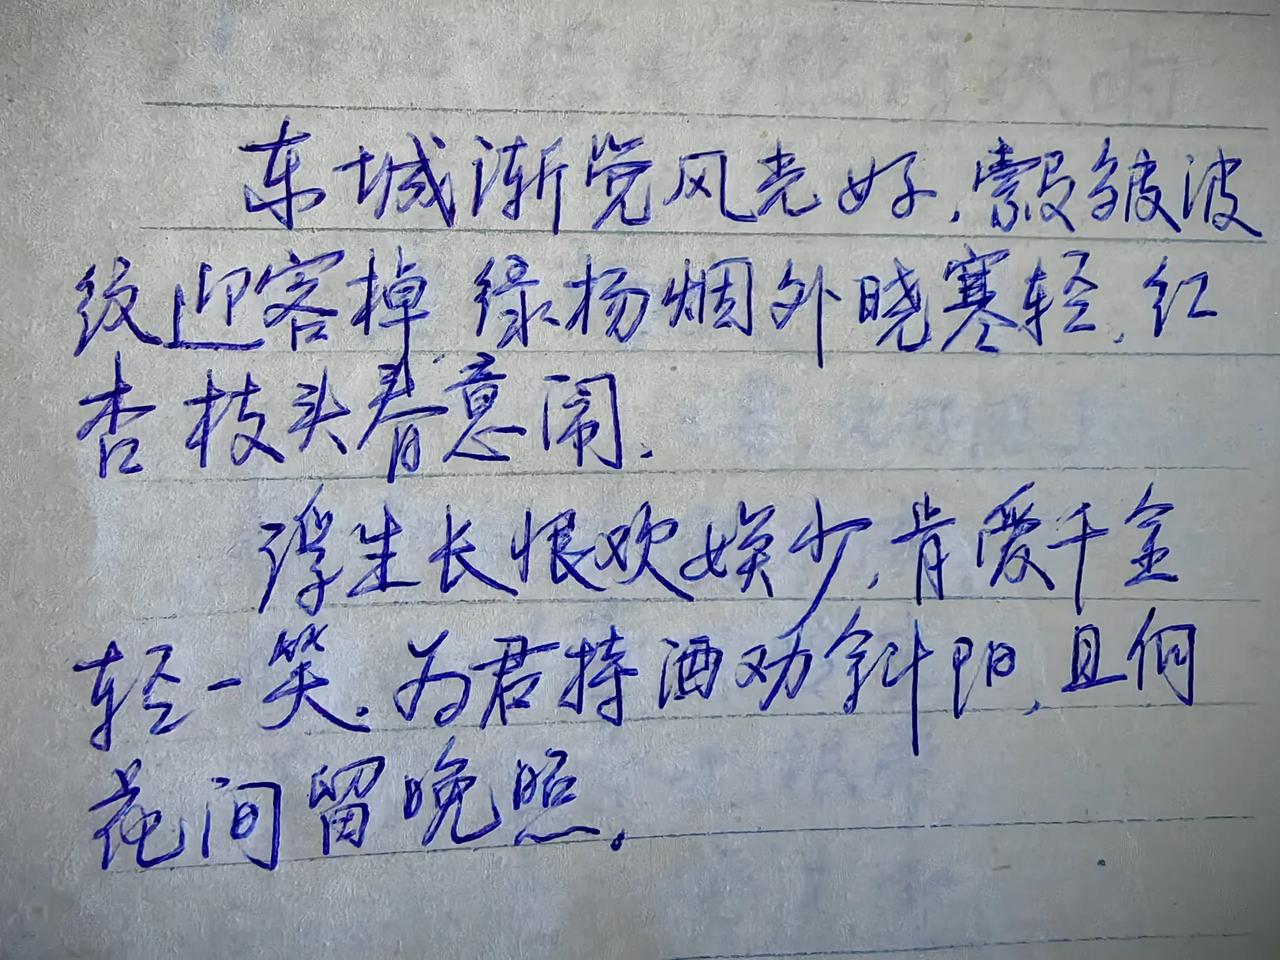 东城渐觉风光好,縠皱波
纹迎客掉 绿杨烟外晓寒轻,红
杏枝头春意闹.
浮生长恨欢娱少,肯爱千金
轻一笑.为君持酒劝斜阳,且向
花间留晚照。